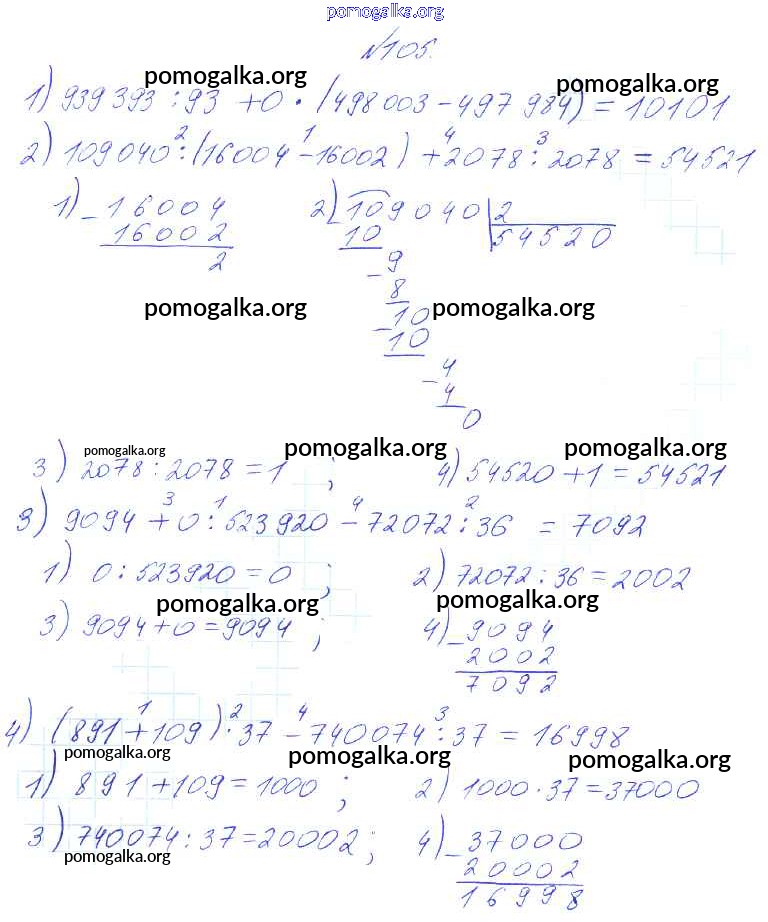 pomogalka.org
№105.
pomogalka.org pomogalka.org
1) 939 393 : 93 + 0 · (498 003 - 497 984) = 10101
2 1 4 3
2) 109 040 : (16004 - 16002) + 2078 : 2078 = 54521
1) - 16004 2) - 109040 | 2
16002 10 54520
2 - 9
8
pomogalka.org pomogalka.org
- 10
10
- 4
4
0
pomogalka.org pomogalka.org pomogalka.org
3) 2078 : 2078 = 1 ; 4) 54520 + 1 = 54521
3 1 4 2
3) 9094 + 0 : 523 920 - 72072 : 36 = 7092
1) 0 : 523920 = 0 ; 2) 72072 : 36 = 2002
pomogalka.org pomogalka.org
3) 9094 + 0 = 9094 ; 4) - 9094
2002
7092
1 2 4 3
4) (891 + 109) · 37 - 740074 : 37 = 16998
pomogalka.org pomogalka.org pomogalka.org
1) 891 + 109 = 1000 ; 2) 1000 · 37 = 37000
3) 740074 : 37 = 20002 ; 4) - 37000
pomogalka.org 20002
16998